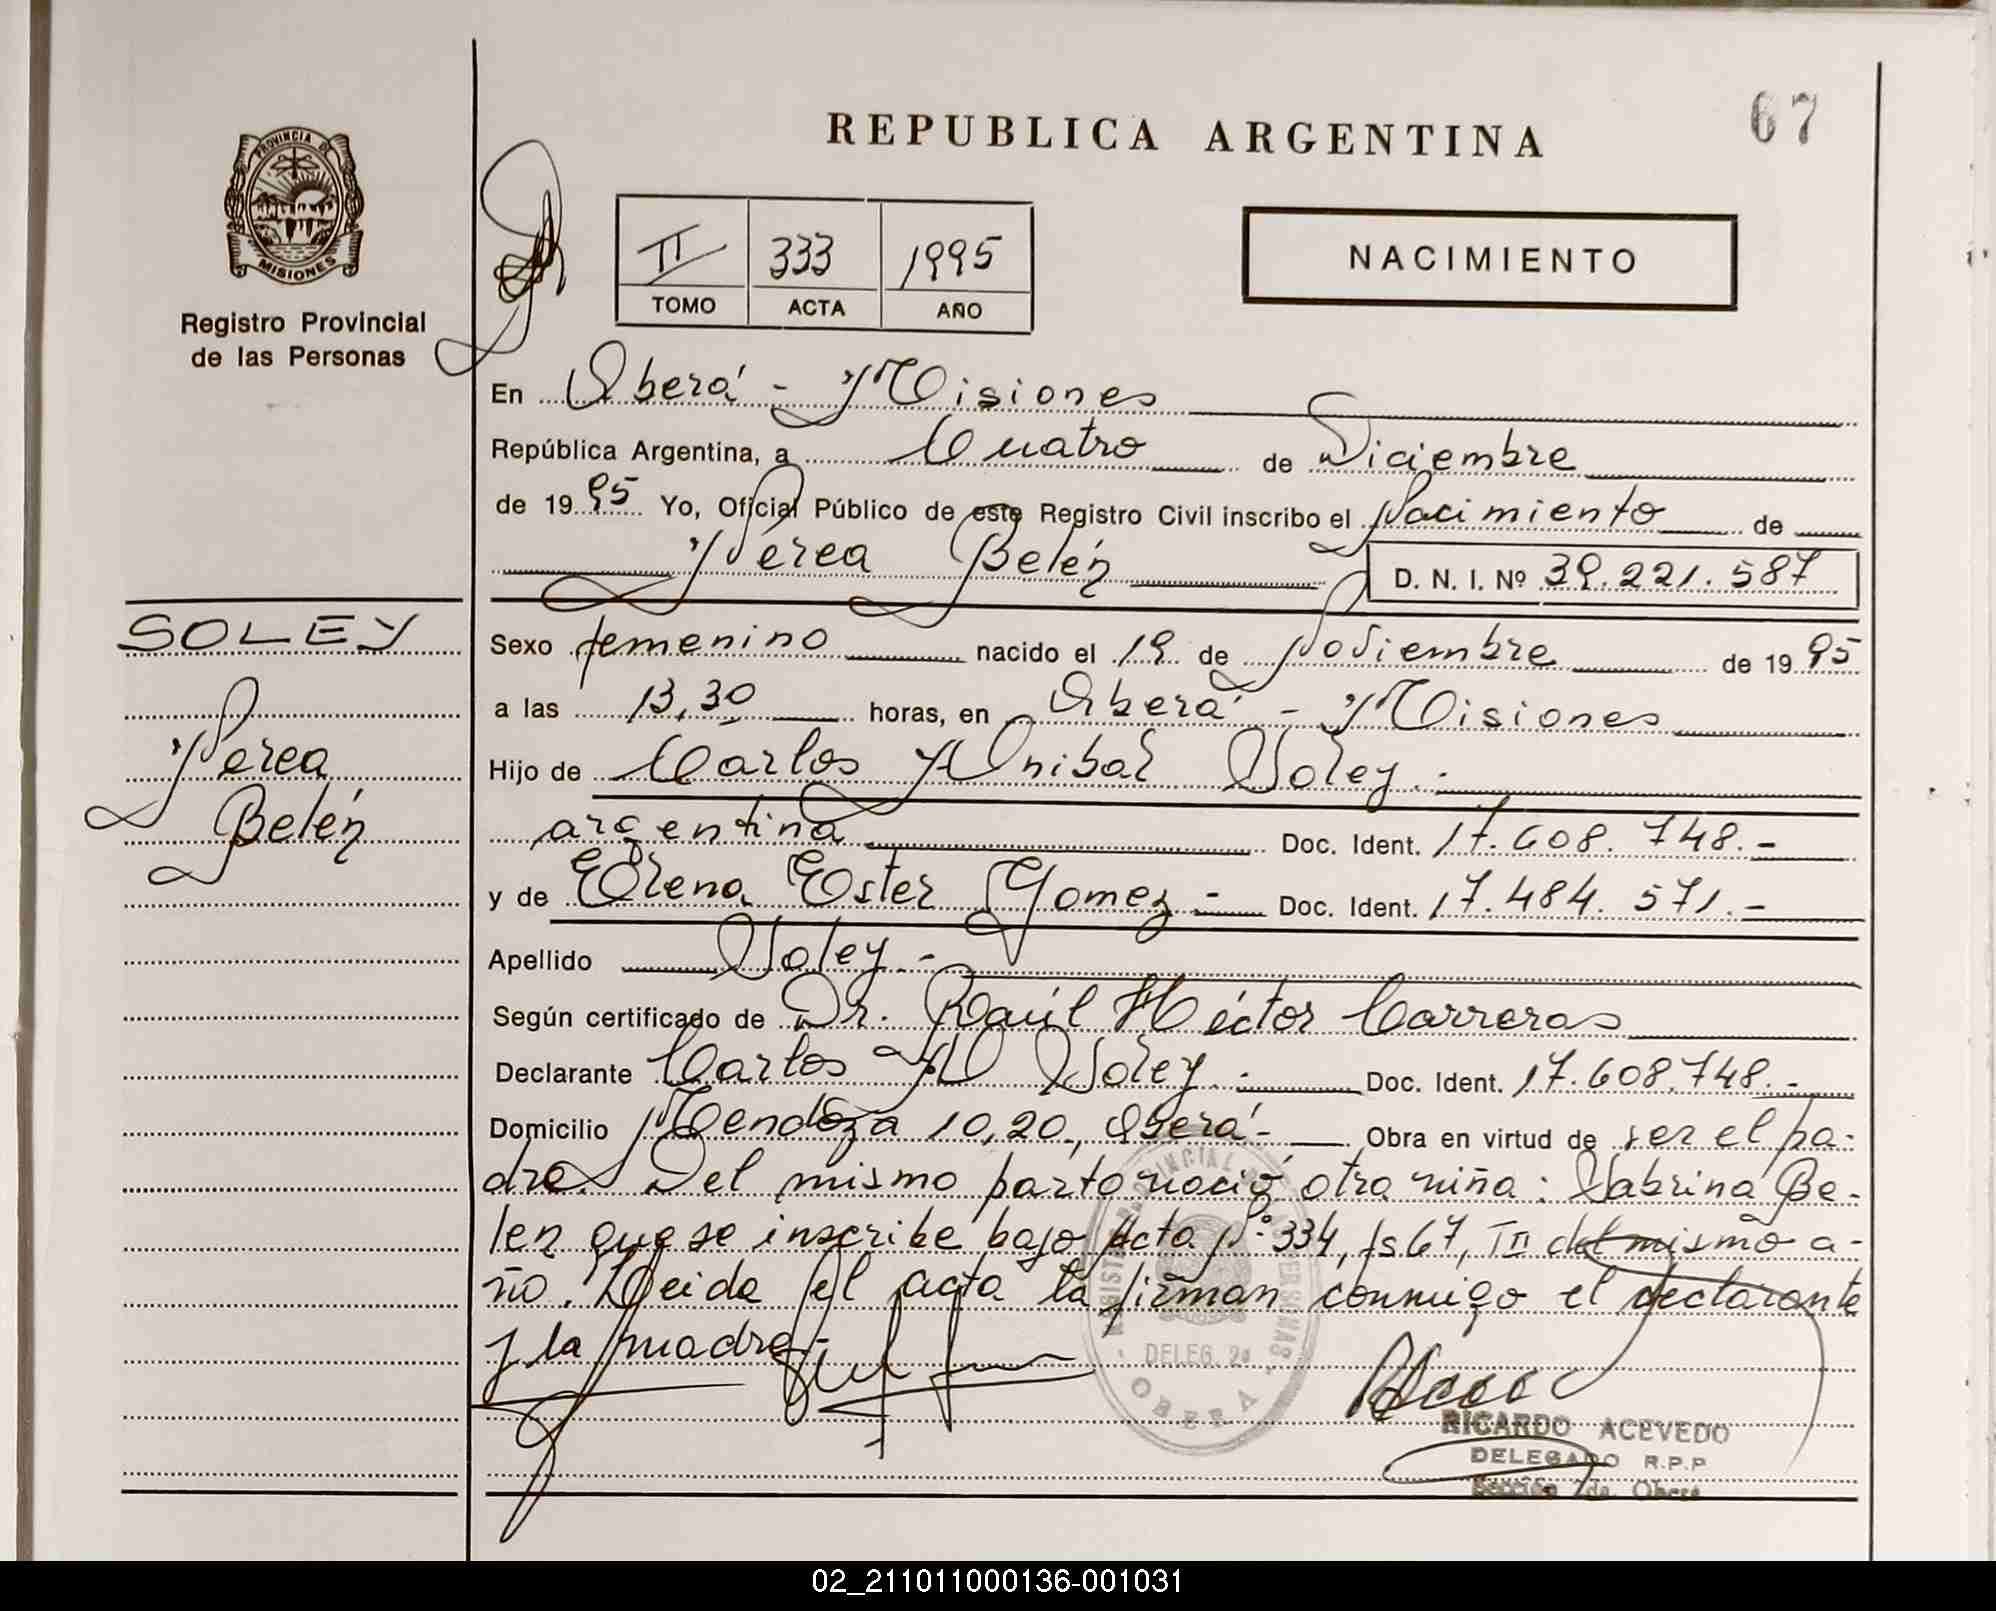 67
REPUBLICA ARGENTINA
PROVINCIA DE
MISIONES
Registro Provincial
de las Personas
II 333 1995
TOMO ACTA AÑO
NACIMIENTO
En Oberá - Misiones
República Argentina, a Cuatro de Diciembre
de 1995 Yo, Oficial Público de este Registro Civil inscribo el Nacimiento de
Nerea Belén D. N. I. Nº 39.221.587
SOLEY
Nerea
Belén
Sexo femenino nacido el 19 de Noviembre de 1995
a las 13,30 horas, en Oberá - Misiones
Hijo de Carlos Anibal Soley.-
argentina Doc. Ident. 17.608.748.-
y de Elena Ester Gomez - Doc. Ident. 17.484.571.-
Apellido Soley.-
Según certificado de Dr. Raúl Héctor Carreras
Declarante Carlos A Soley.- Doc. Ident. 17.608.748.-
Domicilio Mendoza 10,20, Oberá- Obra en virtud de ser el pa-
dre. Del mismo parto nació otra niña: Sabrina Be-
len que se inscribe bajo Acta Nº 334, fs 67, TII del mismo a-
ño. Leida el acta la firman conmigo el declarante
y la madre.-
REGISTRO PROVINCIAL DE LAS PERSONAS
DELEG. 2ª
OBERA
RICARDO ACEVEDO
DELEGADO R.P.P
Sección 2da. Oberá
02_211011000136-001031